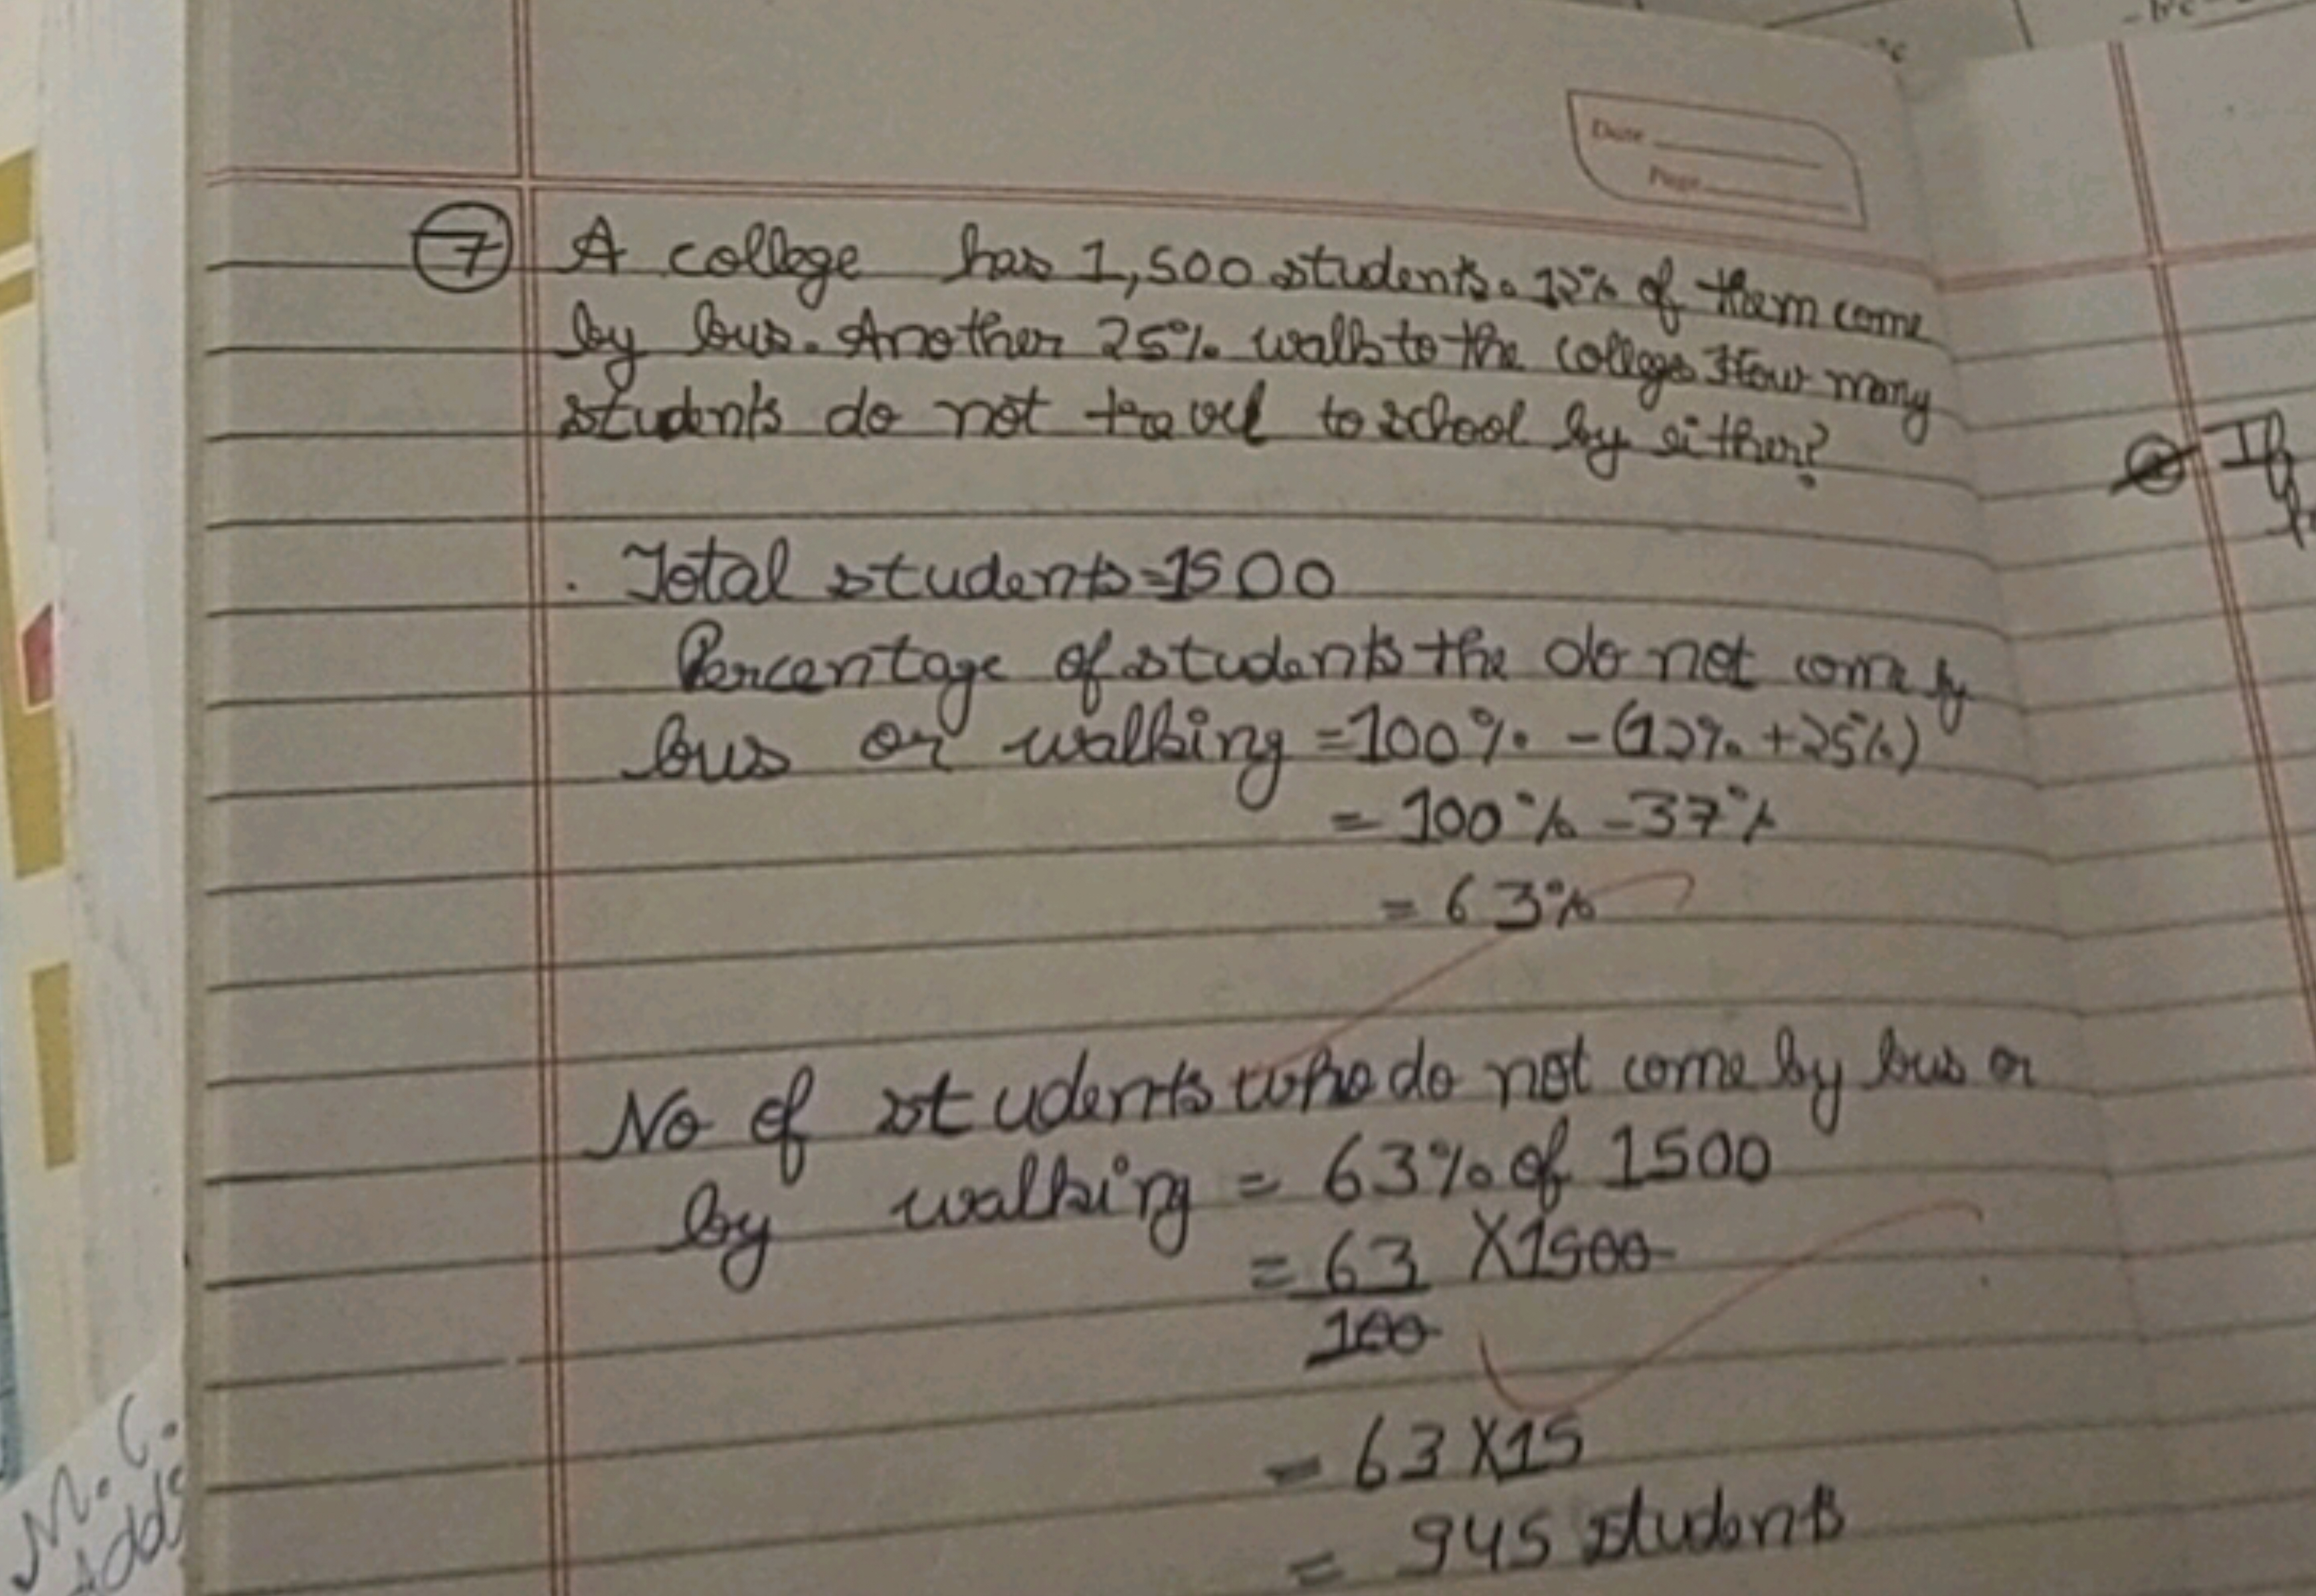 Date
Page
7 A college has 1,500 students. 12% of them come
by bus. Another 25% walk to the college. How many
students do not travel to school by either?
Total students=1500
Percentage of students the do not come by
bus or walking =100% -(12% +25%)
= 100% -37%
= 63%
No of students who do not come by bus or
by walking = 63% of 1500
= 63 X1500
100
= 63 X15
= 945 students
If
M. C.
Add